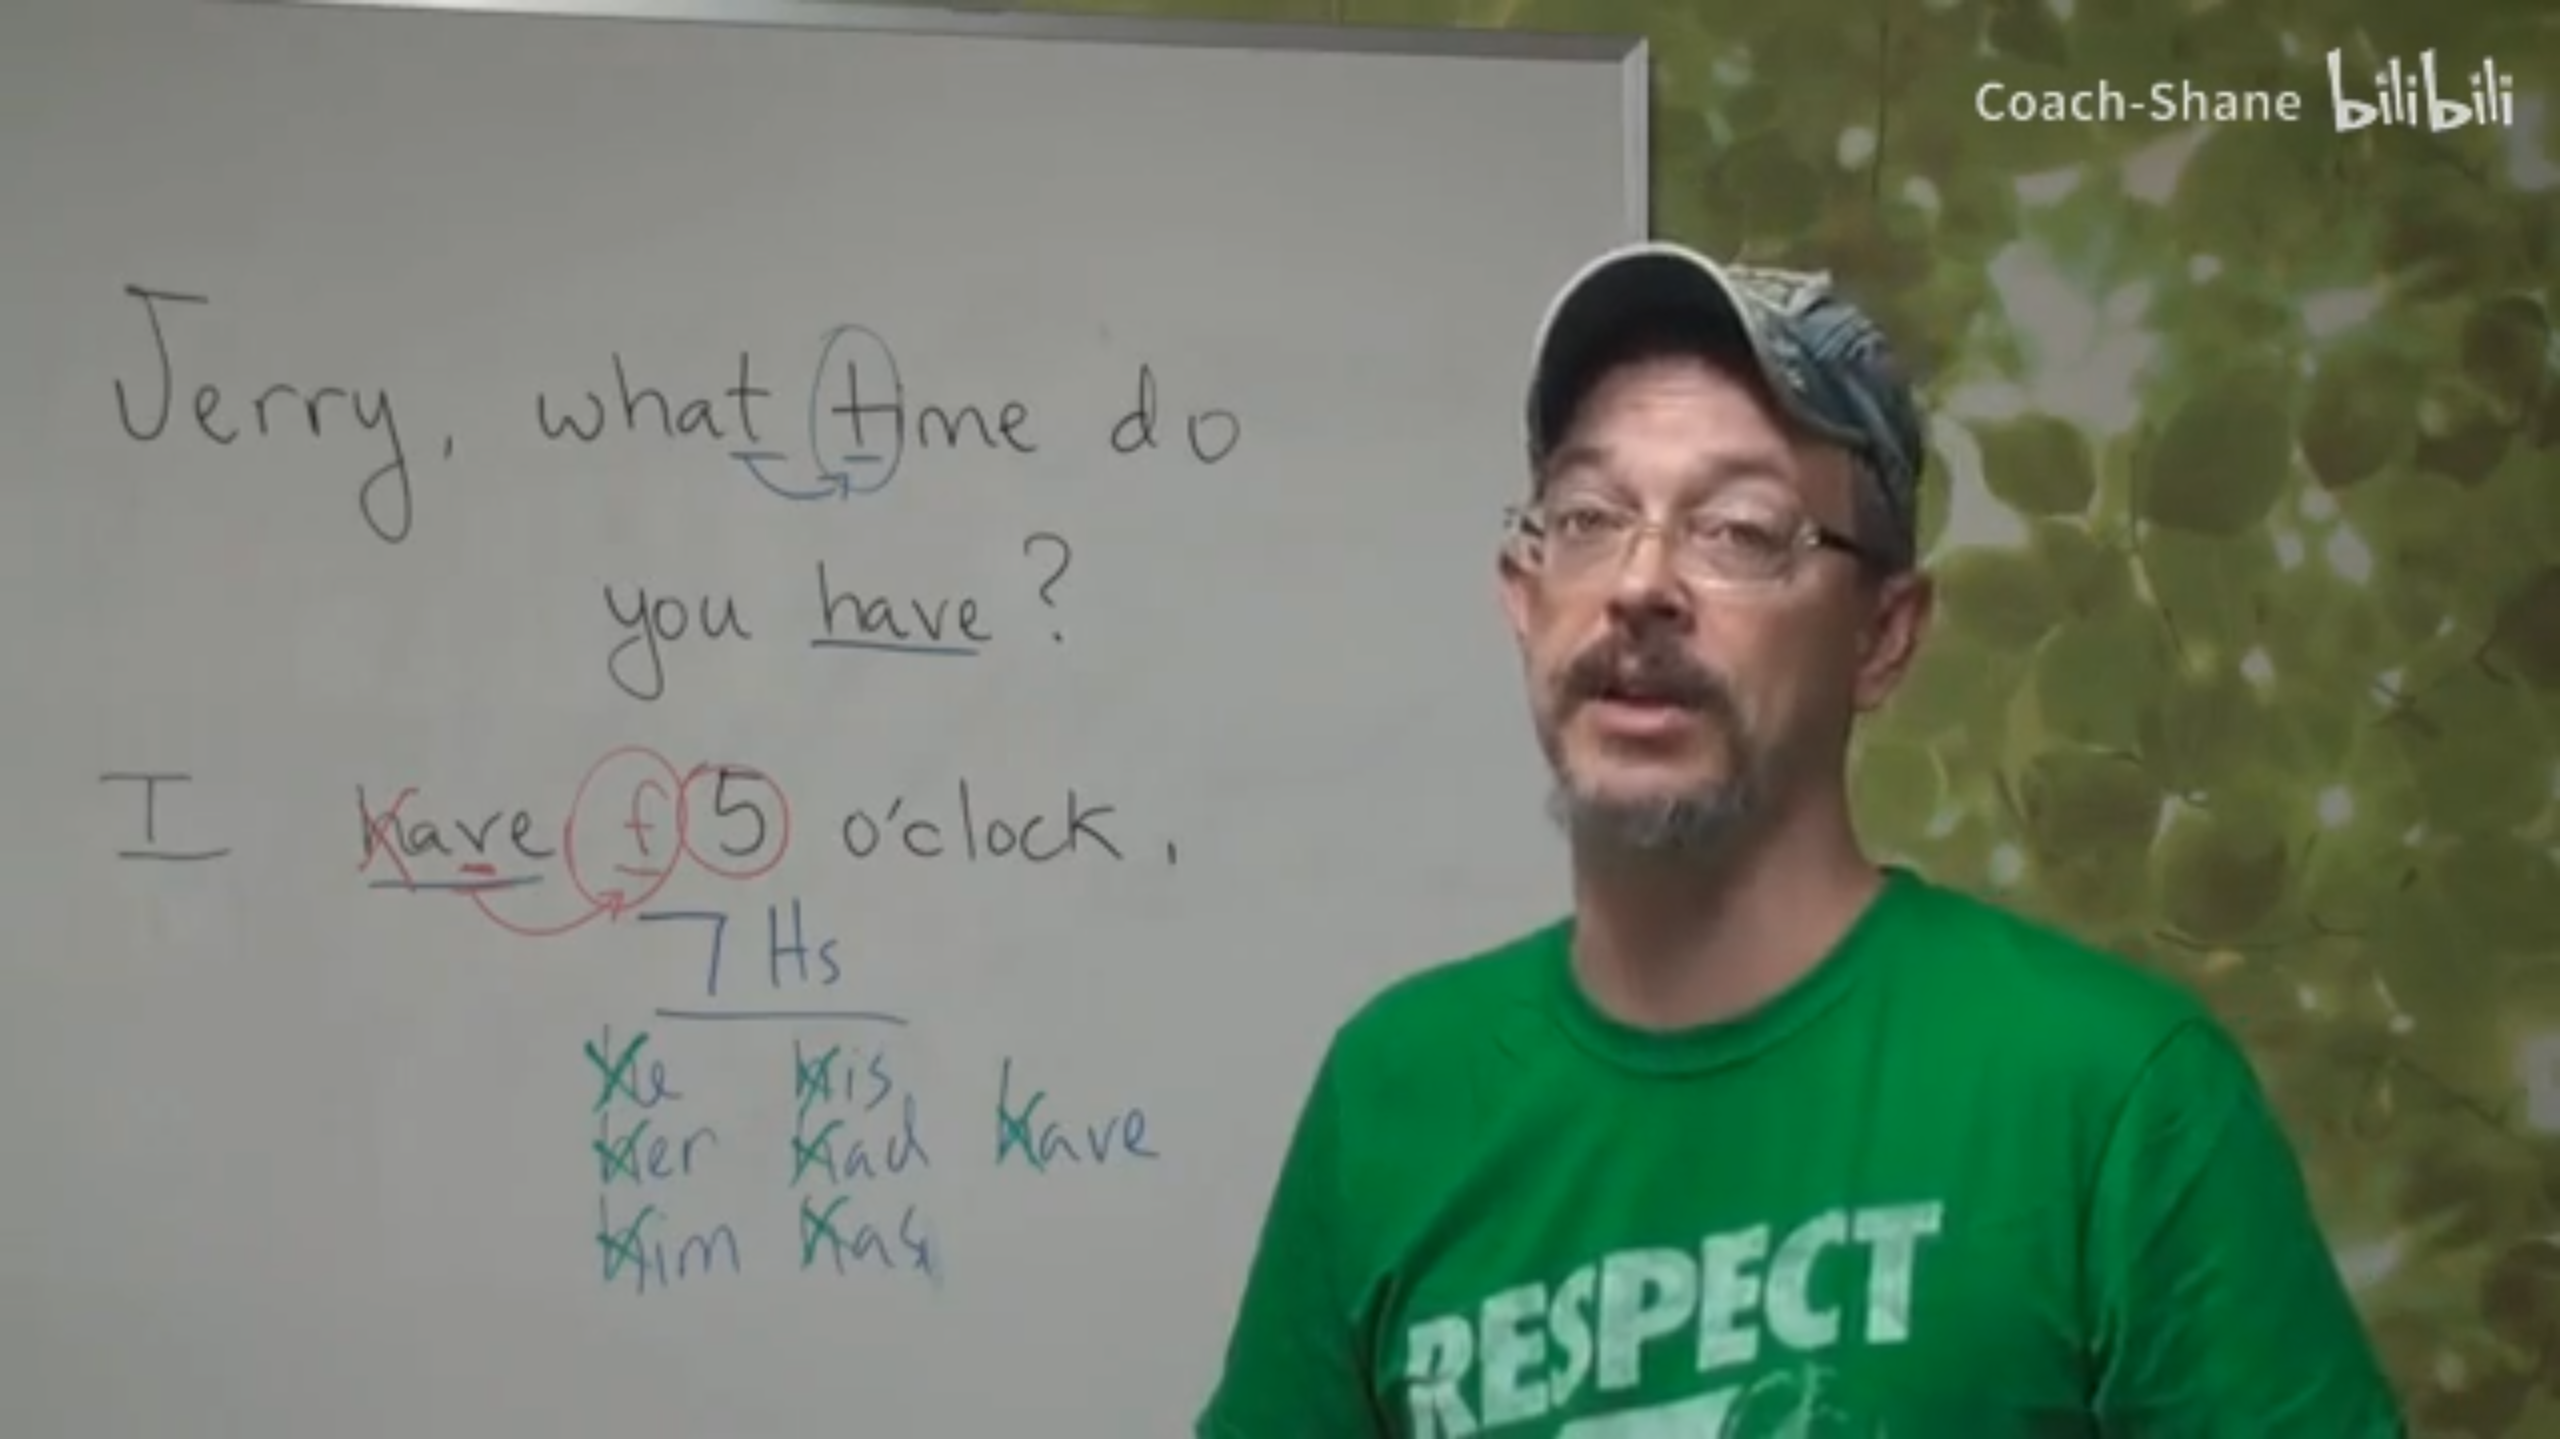 Coach-Shane bilibili
Jerry, what time do
you have?
I have f 5 o'clock.
7 Hs
He his have
Her Had
Him Has
RESPECT